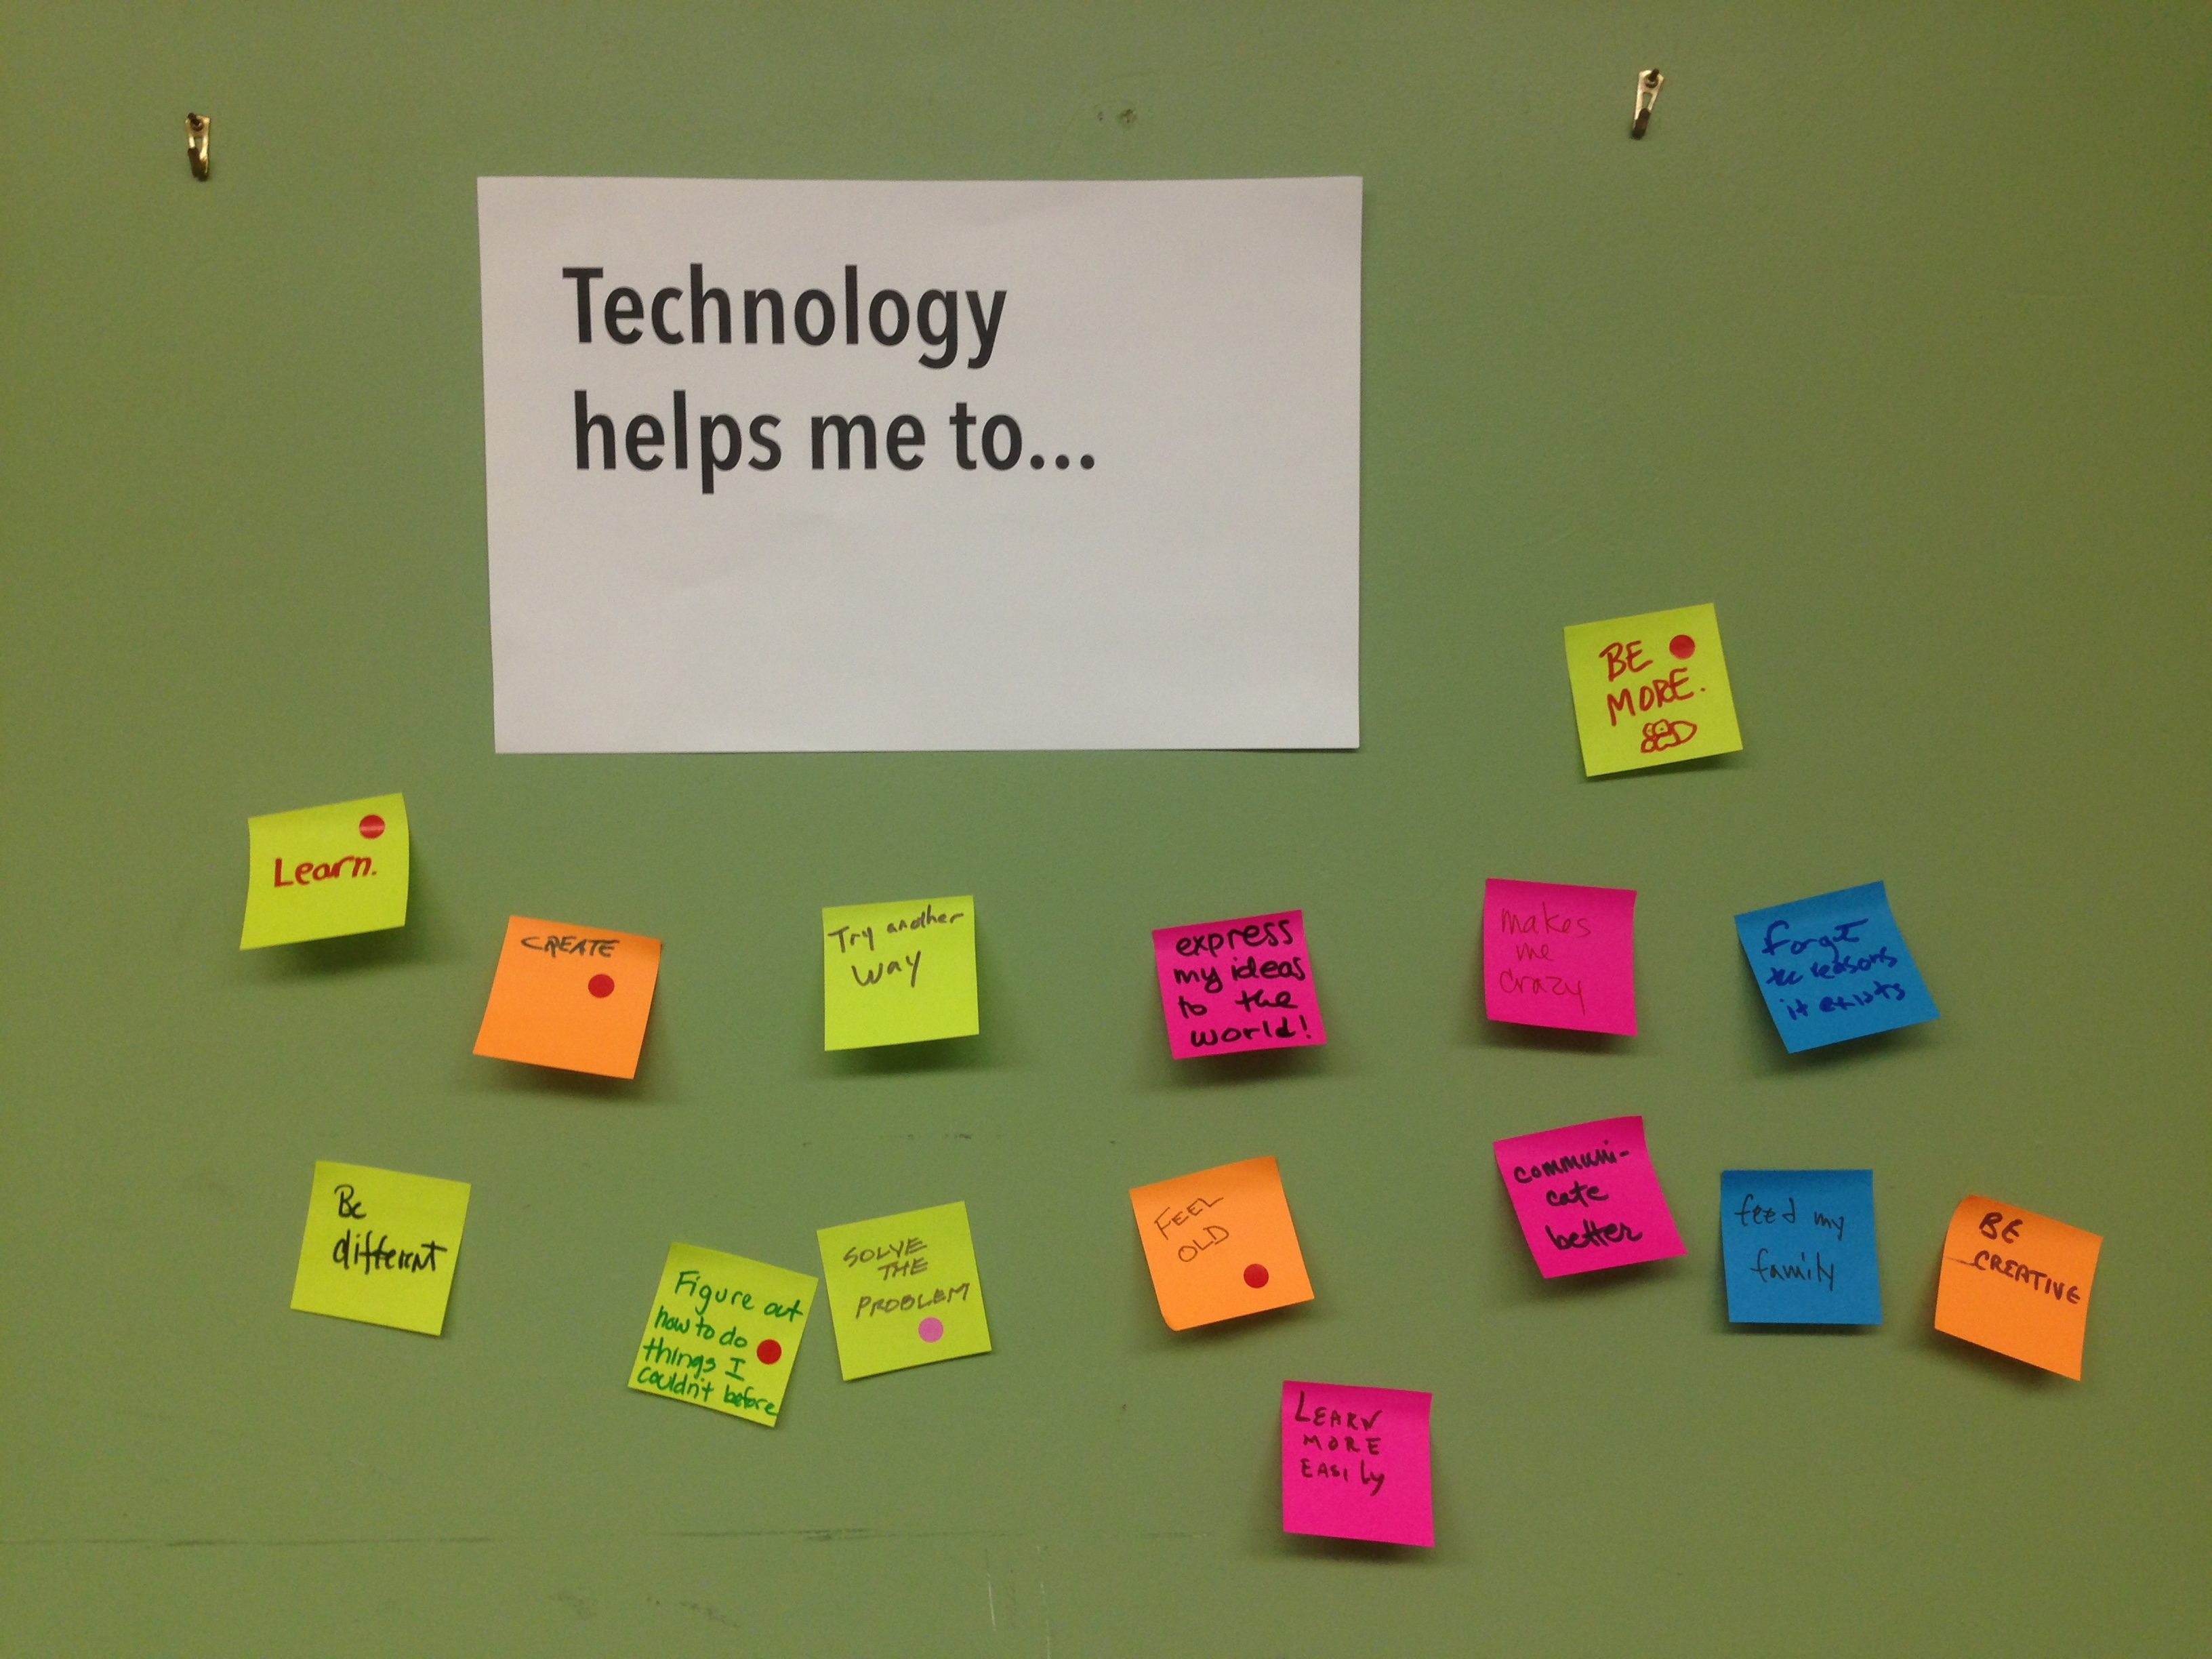 Technology
helps me to...
BE
MORE.
Learn.
CREATE
Try another
way
express
my ideas
to the
world!
makes
me
crazy
forget
the reasons
it exists
Be
different
Figure out
how to do
things I
couldn't before
SOLVE
THE
PROBLEM
FEEL
OLD
communi-
cate
better
feed my
family
BE
CREATIVE
LEARN
MORE
EASILY